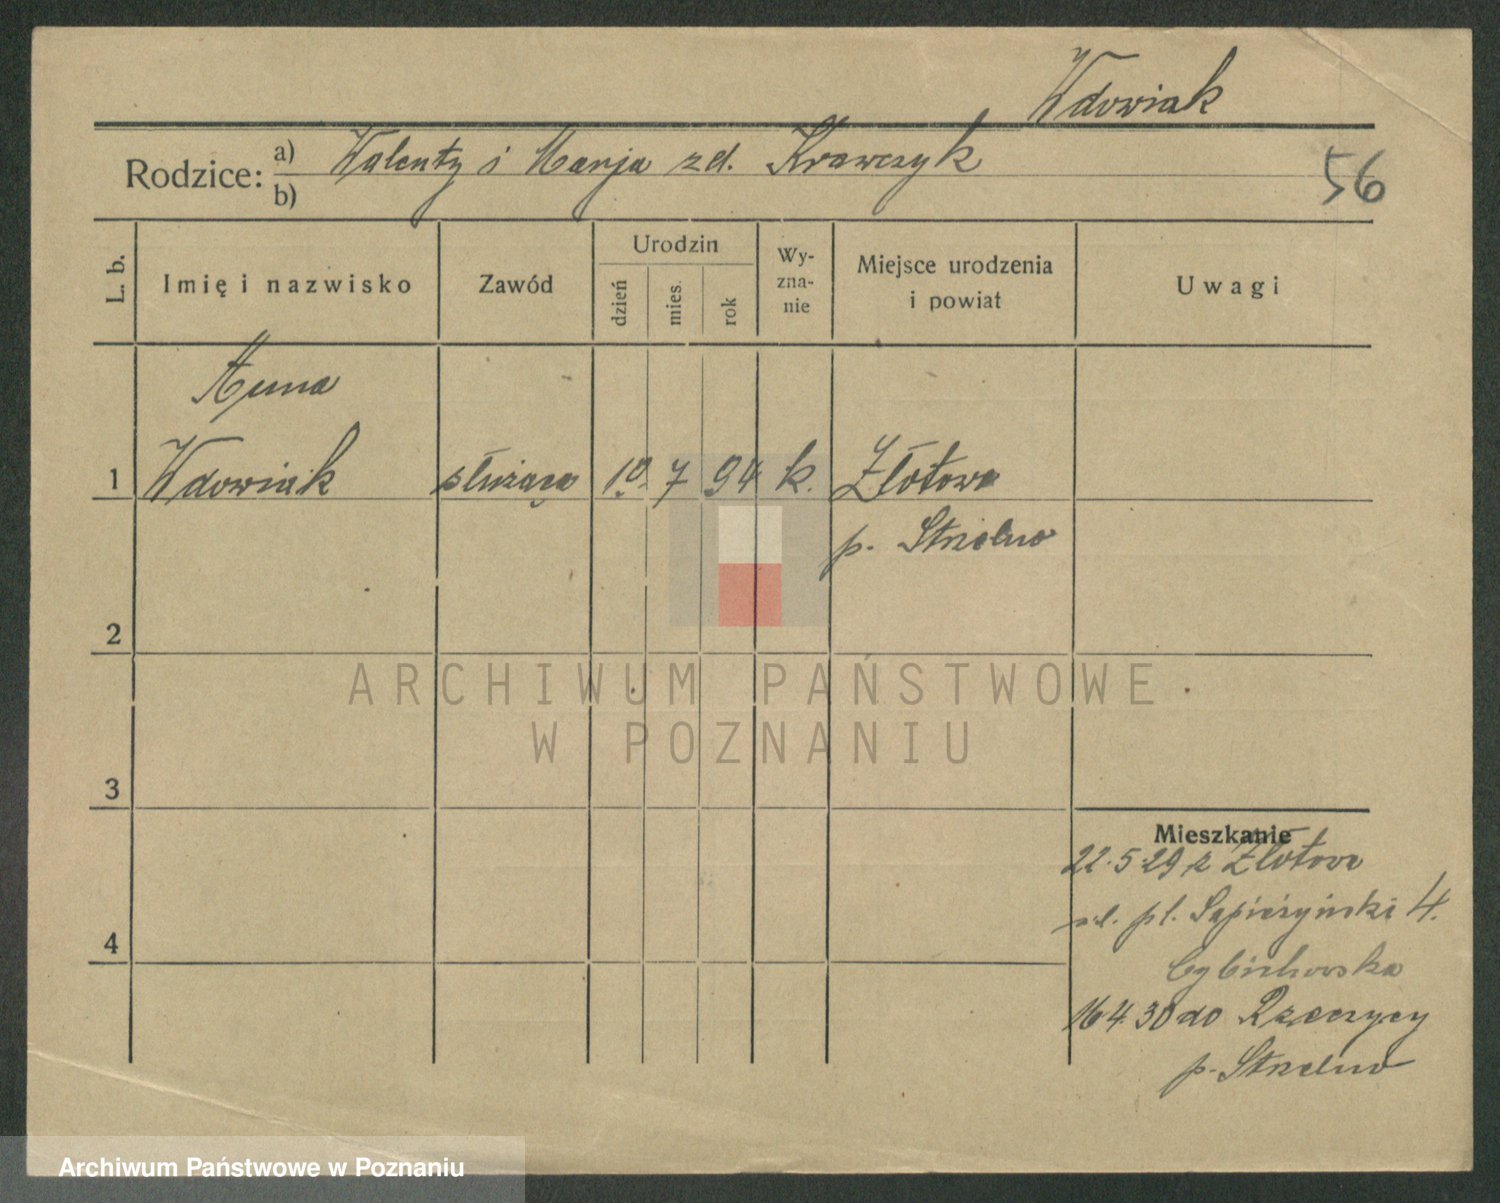 Wdowiak
Rodzice: a) Walenty i Marja zd. Krawczyk
b)
56
L. b.
Imię i nazwisko
Zawód
Urodzin
dzień
mies.
rok
Wy-
zna-
nie
Miejsce urodzenia
i powiat
Uwagi
Anna
1 Wdowiak służąca 10. 7 94 k. Złotowo
p. Strzelno
2
3
4
Mieszkanie
22.5.29 z Złotowo
pl. Sapieżyński 4.
16 4 30 do Rzeczycy
p. Strzelno
ARCHIWUM PAŃSTWOWE
W POZNANIU
Archiwum Państwowe w Poznaniu